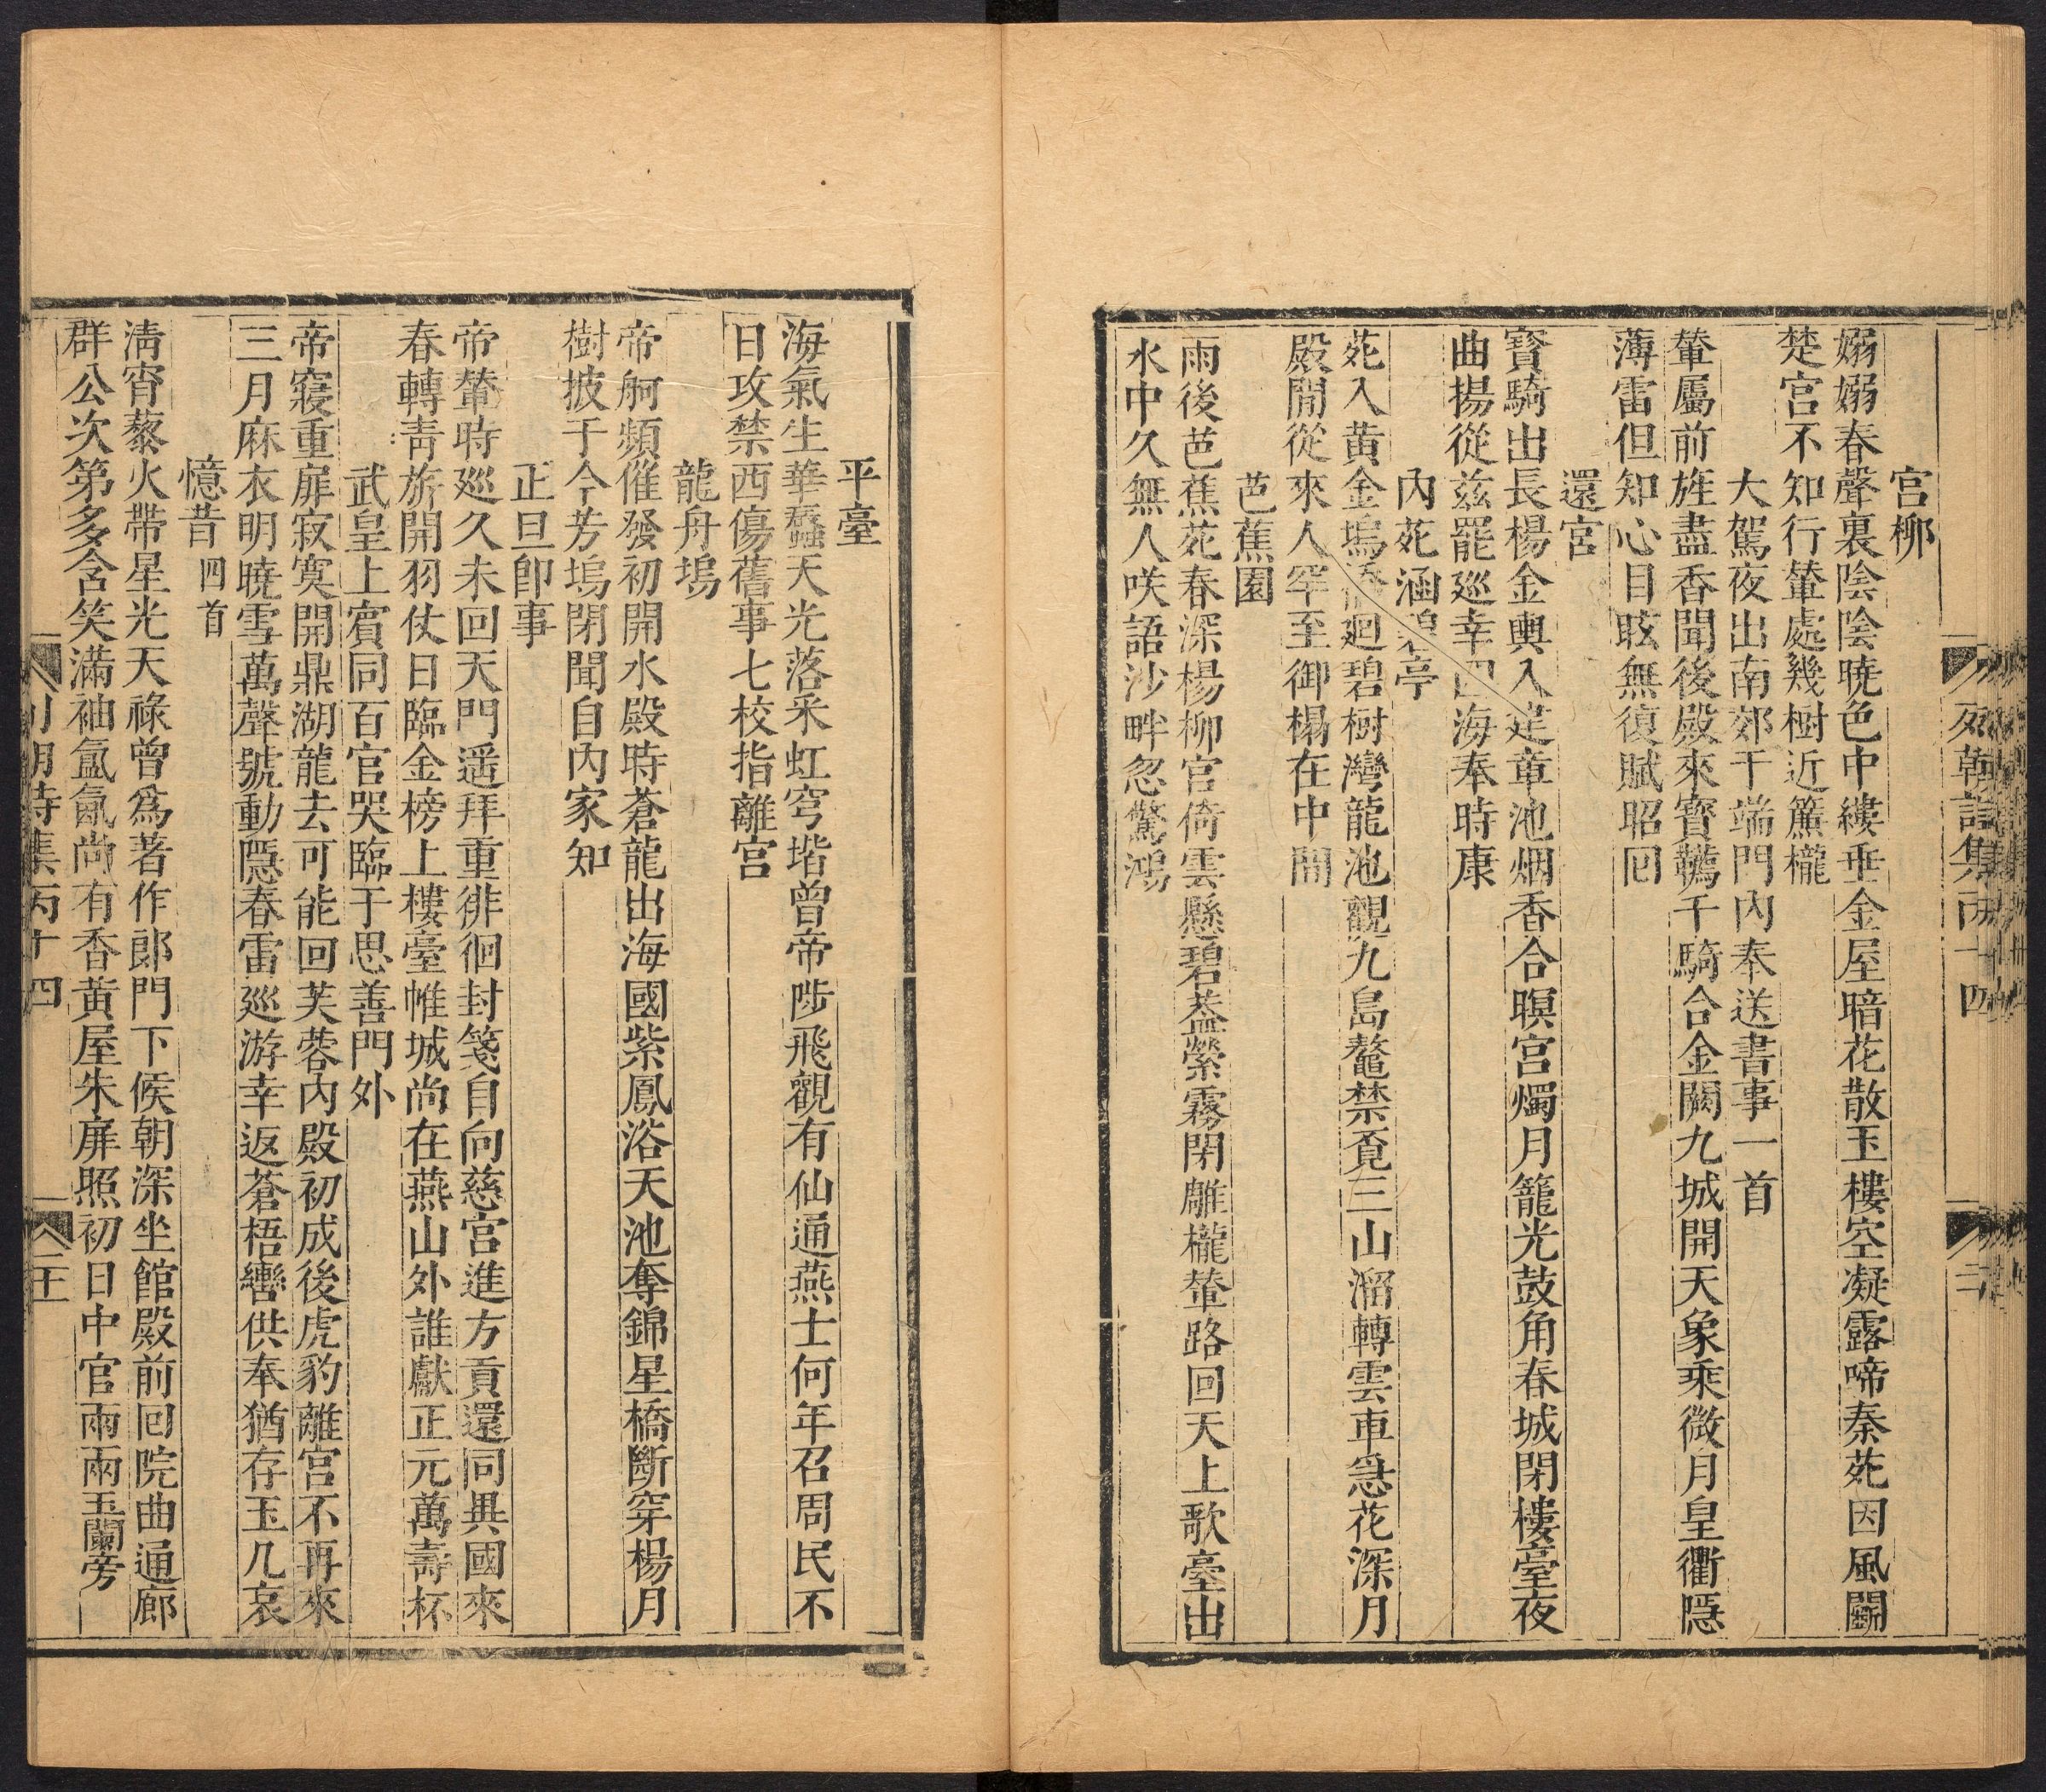 列朝詩集丙十四
二
宮柳
嫋嫋春聲裏陰陰曉色中縷垂金屋暗花散玉樓空凝露啼秦苑因風鬬
楚宮不知行輦處幾樹近簾櫳
大駕夜出南郊于端門內奉送書事一首
輦屬前旌盡香聞後殿來寶韉千騎合金闕九城開天象乘微月皇衢隱
薄雷但知心目眩無復賦昭回
還宮
寶騎出長楊金輿入建章池烟香合暝宮燭月籠光鼓角春城閉樓臺夜
曲揚從兹罷巡幸四海奉時康
內苑涵碧亭
苑入黄金塢 廻碧樹灣龍池觀九島鼇禁覔三山溜轉雲車急花深月
殿閒從來人罕至御榻在中間
芭蕉園
雨後芭蕉苑春深楊柳宮倚雲懸碧葢縈霧閉雕櫳輦路回天上歌臺出
水中久無人咲語沙畔忽驚鴻
平臺
海氣生華蠧天光落采虹穹堦曾帝陟飛觀有仙通燕士何年召周民不
日攻禁西傷舊事七校指離宮
龍舟塢
帝舸頻催發初開水殿時蒼龍出海國紫鳳浴天池奪錦星橋斷穿楊月
樹披于今芳塢閉聞自內家知
正旦卽事
帝輦時巡久未回天門遥拜重徘徊封箋自向慈宮進方貢還同異國來
春轉靑旂開羽仗日臨金榜上樓臺帷城尚在燕山外誰獻正元萬壽杯
武皇上賓同百官哭臨于思善門外
帝寢重扉寂寞開鼎湖龍去可能回芙蓉內殿初成後虎豹離宮不再來
三月麻衣明曉雪萬聲號動隱春雷巡游幸返蒼梧轡供奉猶存玉几哀
憶昔四首
淸宵藜火帶星光天祿曾爲著作郎門下候朝深坐館殿前囘院曲通廊
群公次第多含笑滿袖氤氳尚有香黃屋朱扉照初日中官兩兩玉闌旁
列朝詩集丙十四
二十